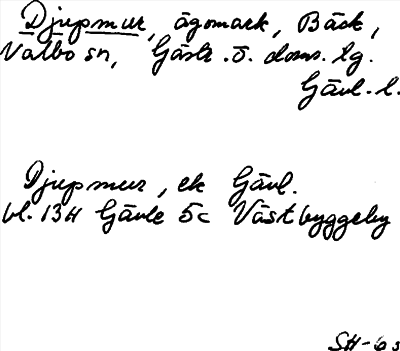 Djupmur, ägomark, Bäck,
Valbo sn, Gästr. ö. doms. lg.
Gävl. l.
Djupmur, ek Gävl.
bl. 13H Gävle 5c Västbyggeby
SH-63